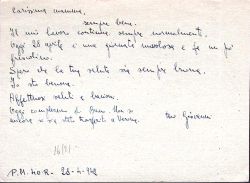 Carissima mamma,
sempre bene.
Il mio lavoro continua sempre normalmente.
Oggi 28 aprile è una giornata nuvolosa e fa un po'
freschino.
Spero che la tua salute sia sempre buona.
Io sto benone.
Affettuosi saluti e bacioni.
tuo Giovanni
Oggi compleanno di
ancora si sia trasferito a Verona.
P.M. 402. 28-4-942